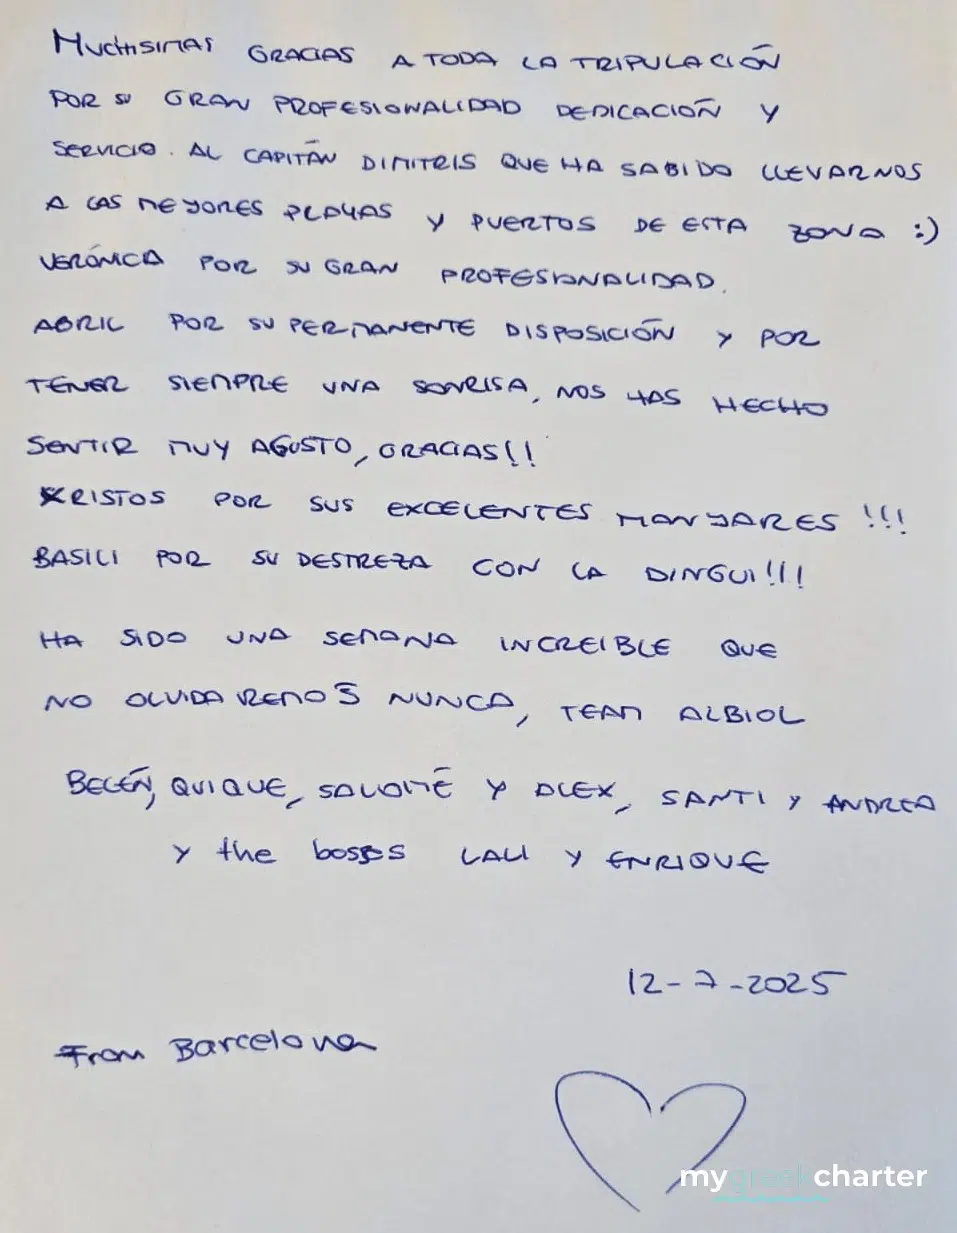 MUCHISIMAS GRACIAS A TODA LA TRIPULACIÓN
POR SU GRAN PROFESIONALIDAD DEDICACIÓN Y
SERVICIO. AL CAPITÁN DIMITRIS QUE HA SABIDO LLEVARNOS
A LAS MEJORES PLAYAS Y PUERTOS DE ESTA ZONA :)
VERÓNICA POR SU GRAN PROFESIONALIDAD.
ABRIL POR SU PERMANENTE DISPOSICIÓN Y POR
TENER SIEMPRE UNA SONRISA, NOS HAS HECHO
SENTIR MUY AGUSTO, GRACIAS!!
KRISTOS POR SUS EXCELENTES MANJARES !!!
BASILI POR SU DESTREZA CON LA DINGUI!!!
HA SIDO UNA SEMANA INCREIBLE QUE
NO OLVIDAREMOS NUNCA, TEAM ALBIOL
BELÉN, QUIQUE, SALOMÉ Y ALEX, SANTI Y ANDREA
Y the bosses LALI Y ENRIQUE
12-7-2025
From Barcelona
mygreekcharter